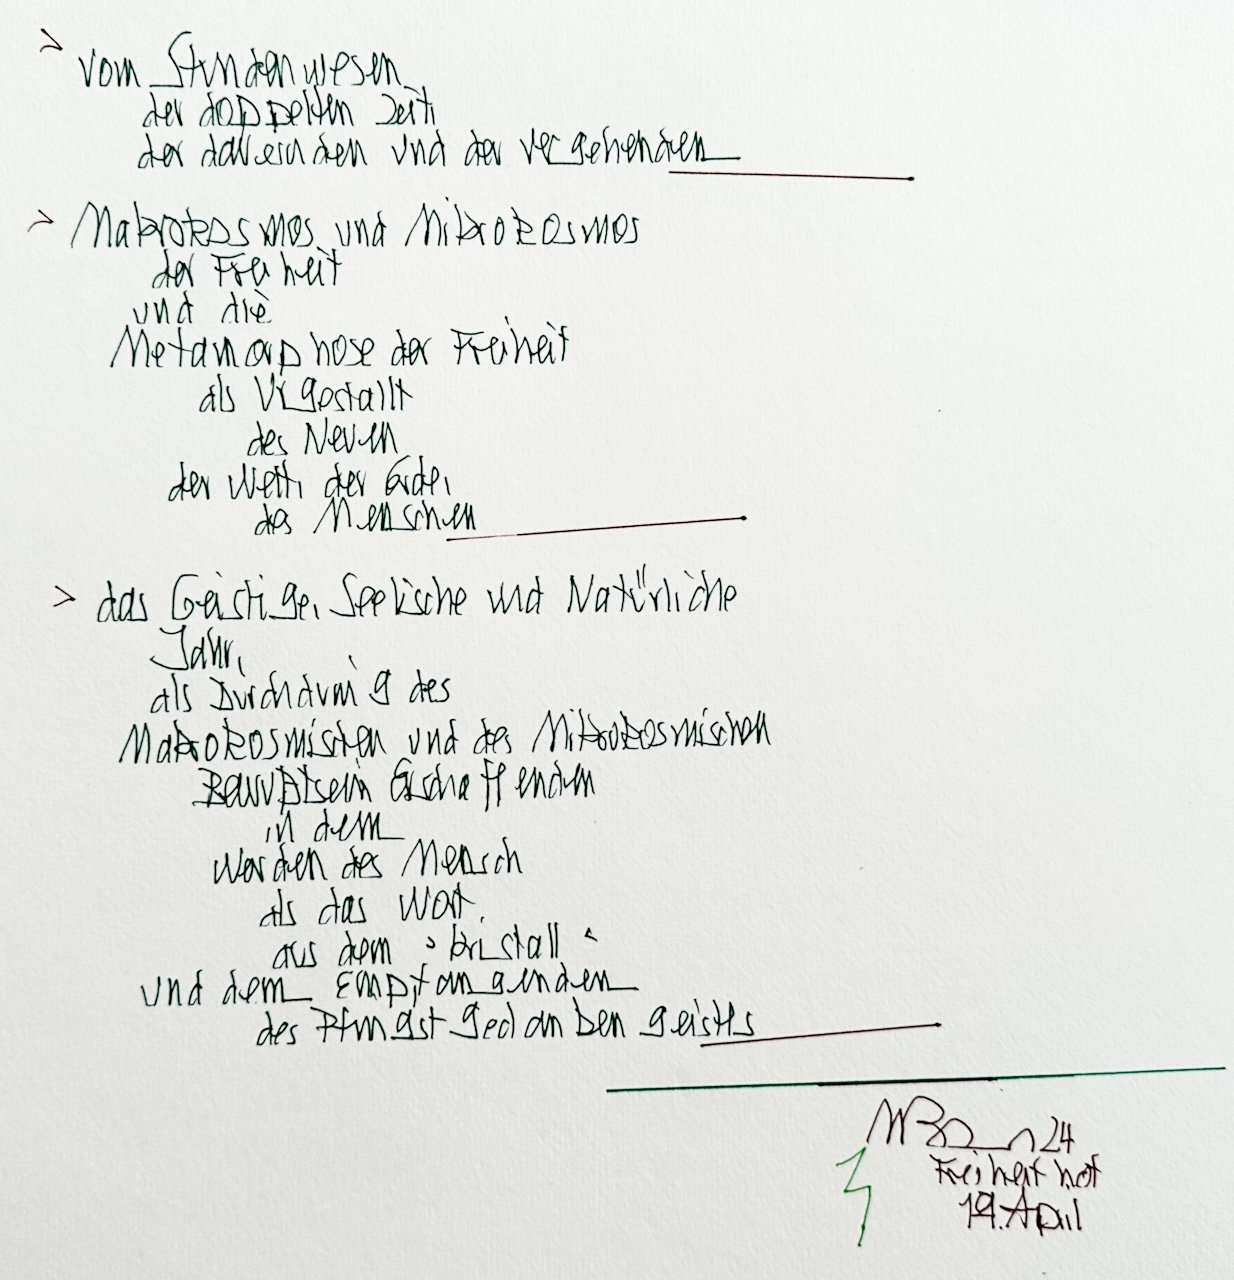 > vom Stundenwesen
der doppelten Zeit,
der dauernden und der vergehenden
> Makrokosmos und Mikrokosmos
der Freiheit
und die
Metamorphose der Freiheit
als Urgestallt
des Neuen
der Welt, der Erde,
des Menschen
> das Geistige, Seelische und Natürliche
Jahr,
als Durchdrung des
Makrokosmischen und des Mikrokosmischen
Bewußtsein Erschaffenden
in dem
Werden des Mensch
als das Wort,
aus dem > kristall <
und dem Empfangenden
des Pfingstgedankengeistes
24
Freiheit hof
19. April